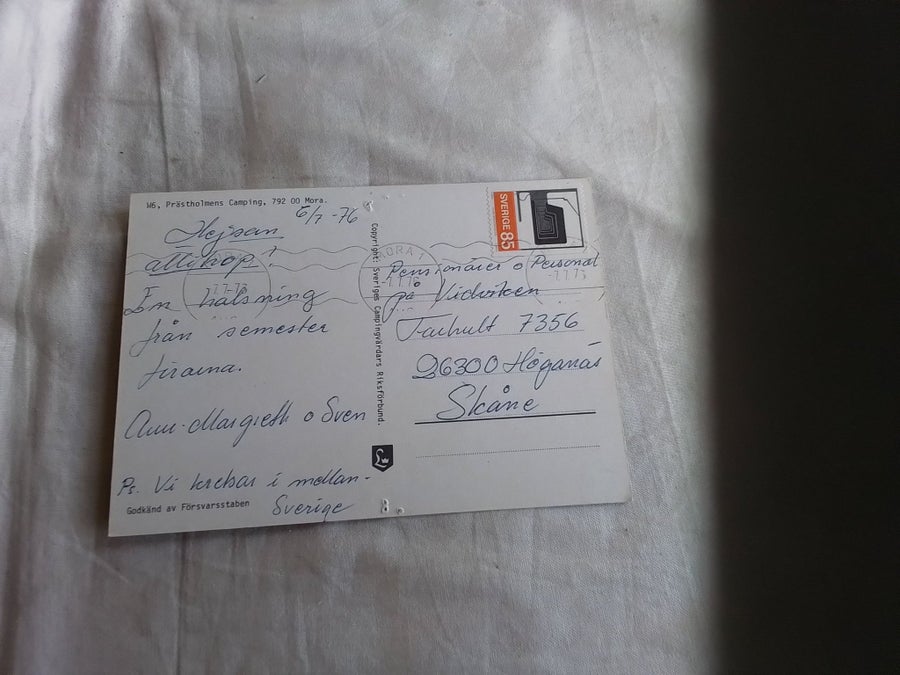 W6, Prästholmens Camping, 792 00 Mora.
6/7 -76
Hejsan
allihop!
En hälsning
från semester
firarna.
Ann-Margreth o Sven
Ps. Vi kretsar i mellan-
Sverige
Godkänd av Försvarsstaben
Copyright: Sveriges Campingvärdars Riksförbund.
SVERIGE 85
MORA 1
-7.7.76
Pensionärer o Personal
på Vidviken
Farhult 7356
26300 Höganäs
Skåne